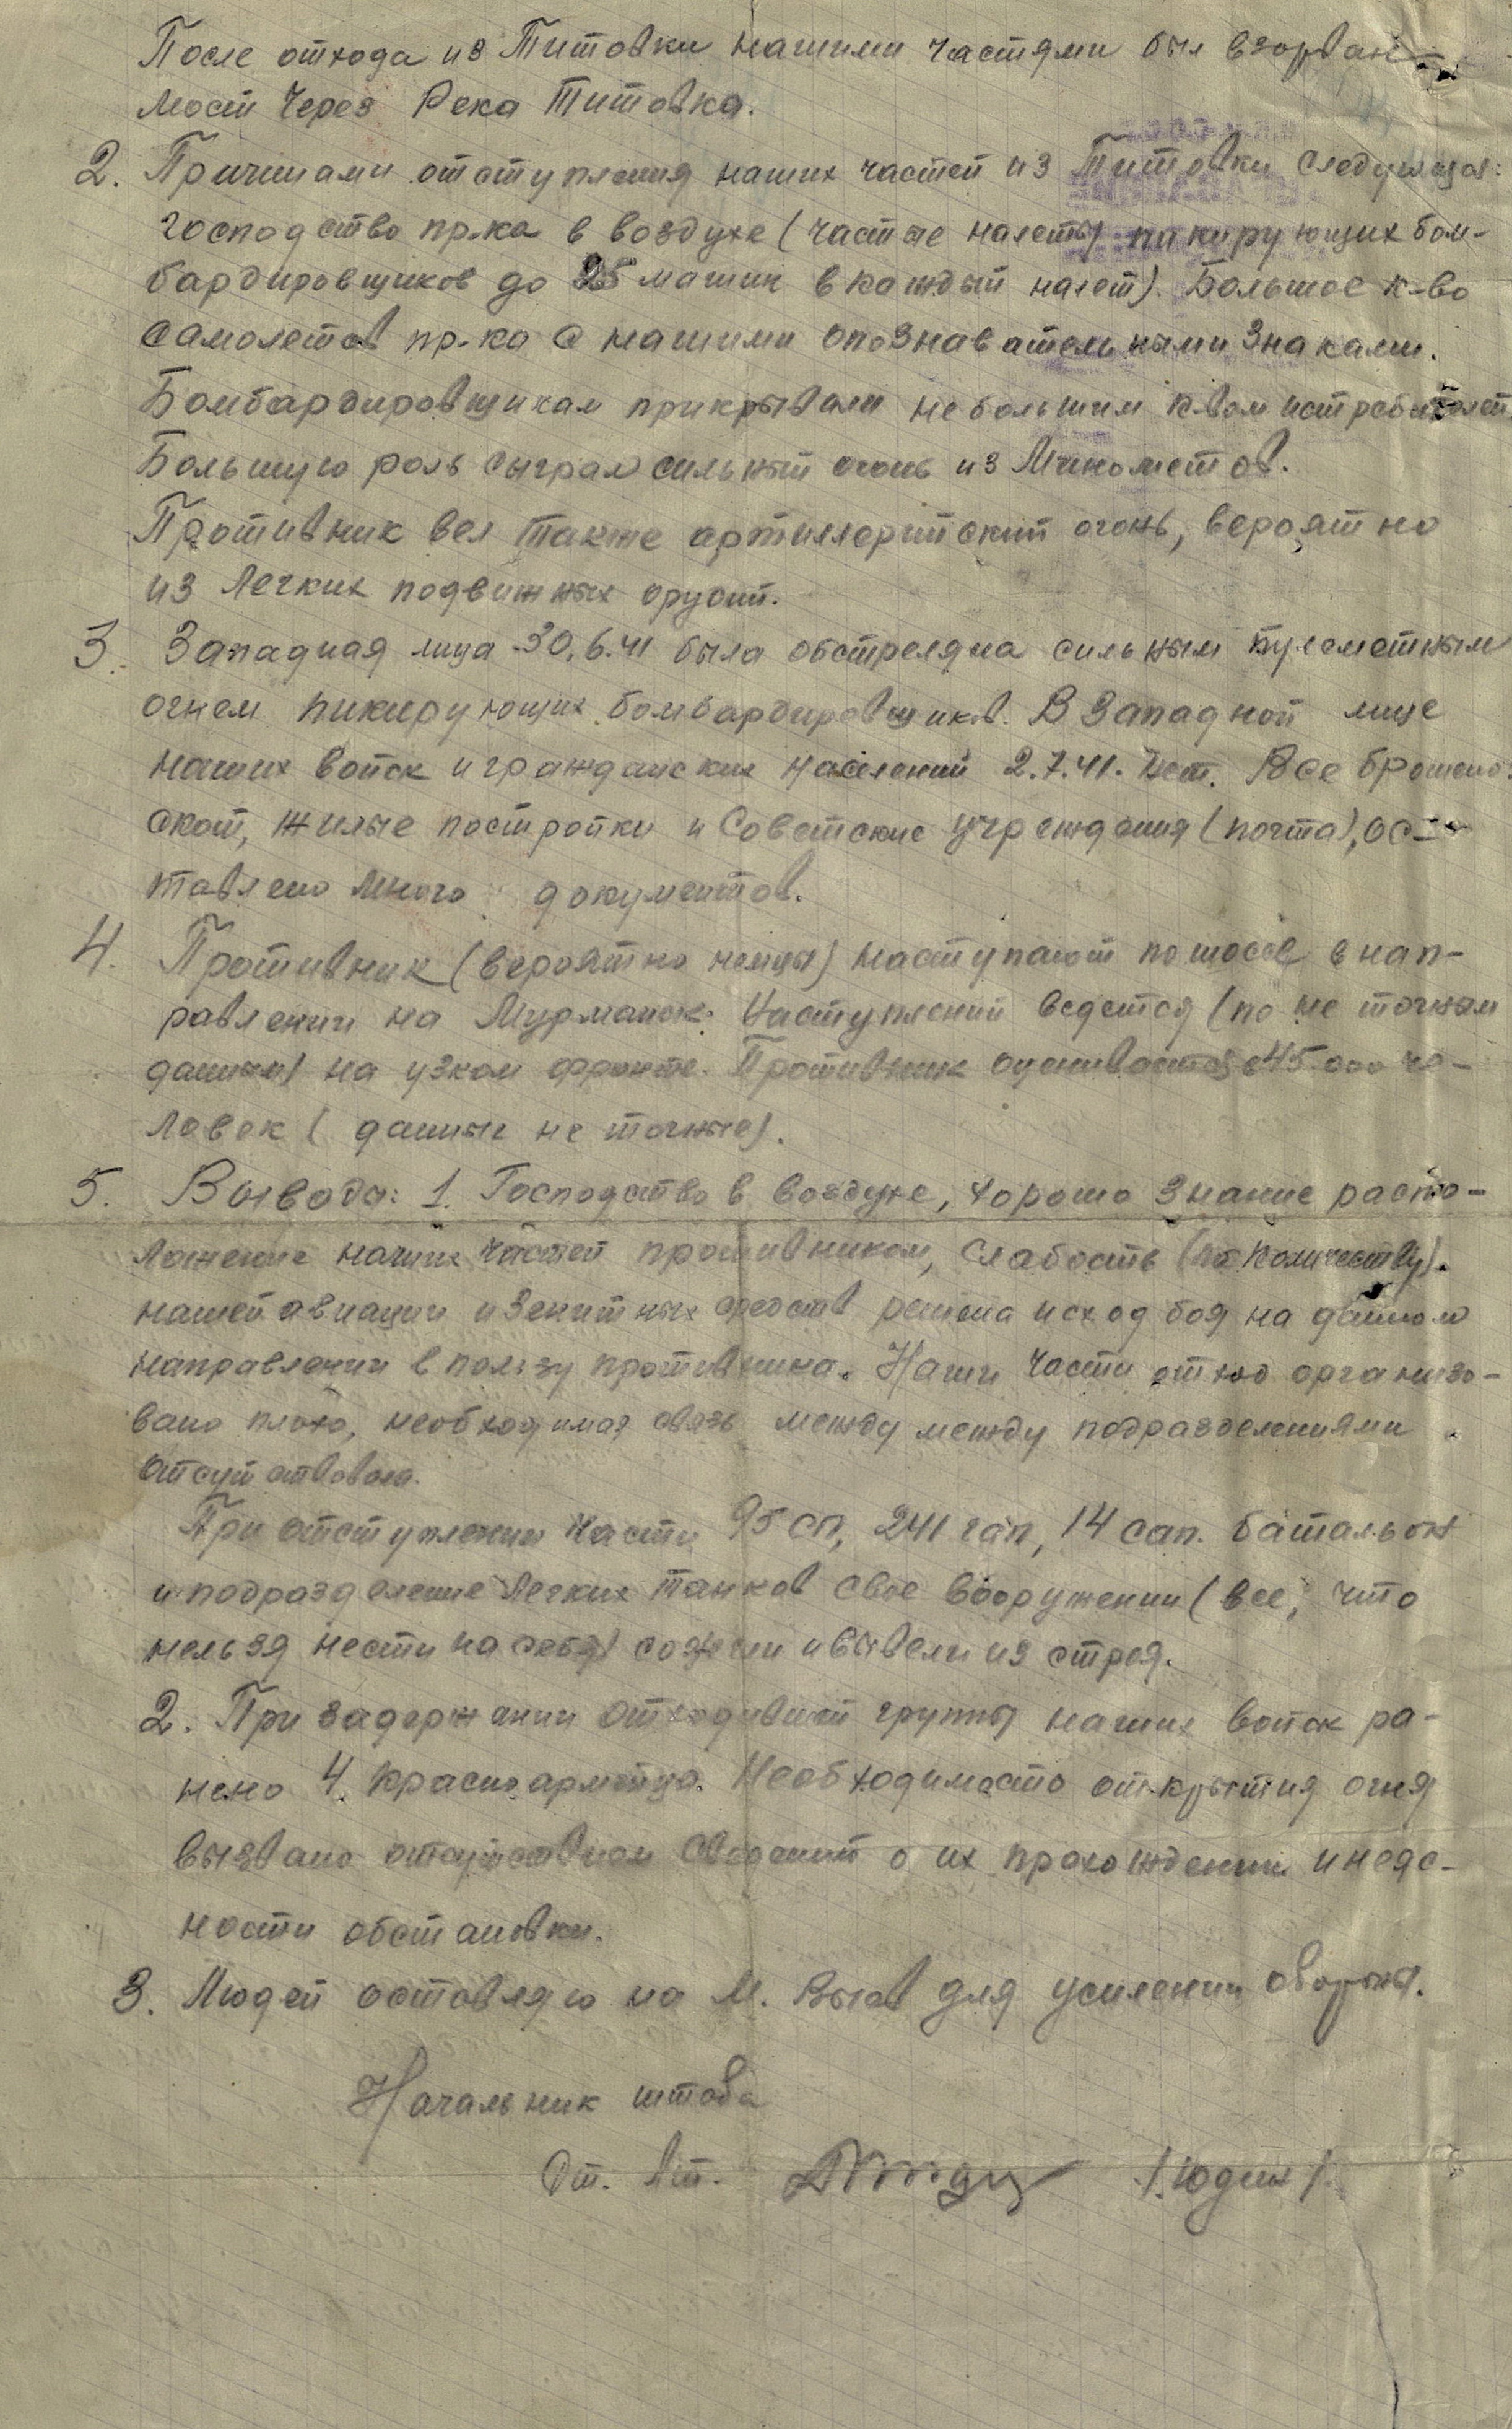 После отхода из Титовки нашими частями был взорван
мост через Река Титовка.
2. Причинами отступления наших частей из Титовки следующая:
господство пр-ка в воздухе (частые налеты пикирующих бом-
бардировщиков до 25 машин в каждый налет). Большое к-во
самолетов пр-ка с нашими опознавательными знаками.
Бомбардировщикам прикрывали небольшим к-вом истребителей
Большую роль сыграл сильный огонь из Минометов.
Противник вел также артиллерийский огонь, вероятно
из легких подвижных орудий.
3. Западная лица 30.6.41 была обстреляна сильным пулеметным
огнем пикирующих бомбардировщиков. В Западной лице
наших войск и гражданских населений 2.7.41. нет. Все брошено:
скот, жилые постройки и Советские учреждения (почта), ос-
тавлено много документов.
4. Противник (вероятно немцы) наступают по шоссе в нап-
равлении на Мурманск. Наступлений ведется (по не точным
данным) на узком фронте. Противник оценивается 45000 че-
ловек (данные не точные).
5. Выводы: 1. Господство в воздухе, хорошо знание распо-
ложение наших частей противником, слабость (по количеству).
нашей авиации и зенитных средств решена исход боя на данном
направлении в пользу противника. Наши части отход организо-
вано плохо, необходимая связь между между подразделениями
отсутствовала.
При отступлении части 95 сп, 241 гап, 14 сап. батальон
и подразделение легких танков свое вооружении (все, что
нельзя нести на себя) сожгли и вывели из строя.
2. При задержании отходившей группы наших войск ра-
нено 4 красноармейца. Необходимость открытия огня
вызвано отсутствием сведений о их прохождении и неяс-
ности обстановки.
3. Людей оставляю на М. Выев для усилении обороны.
Начальник штаба
Ст. лт. /Юдин/